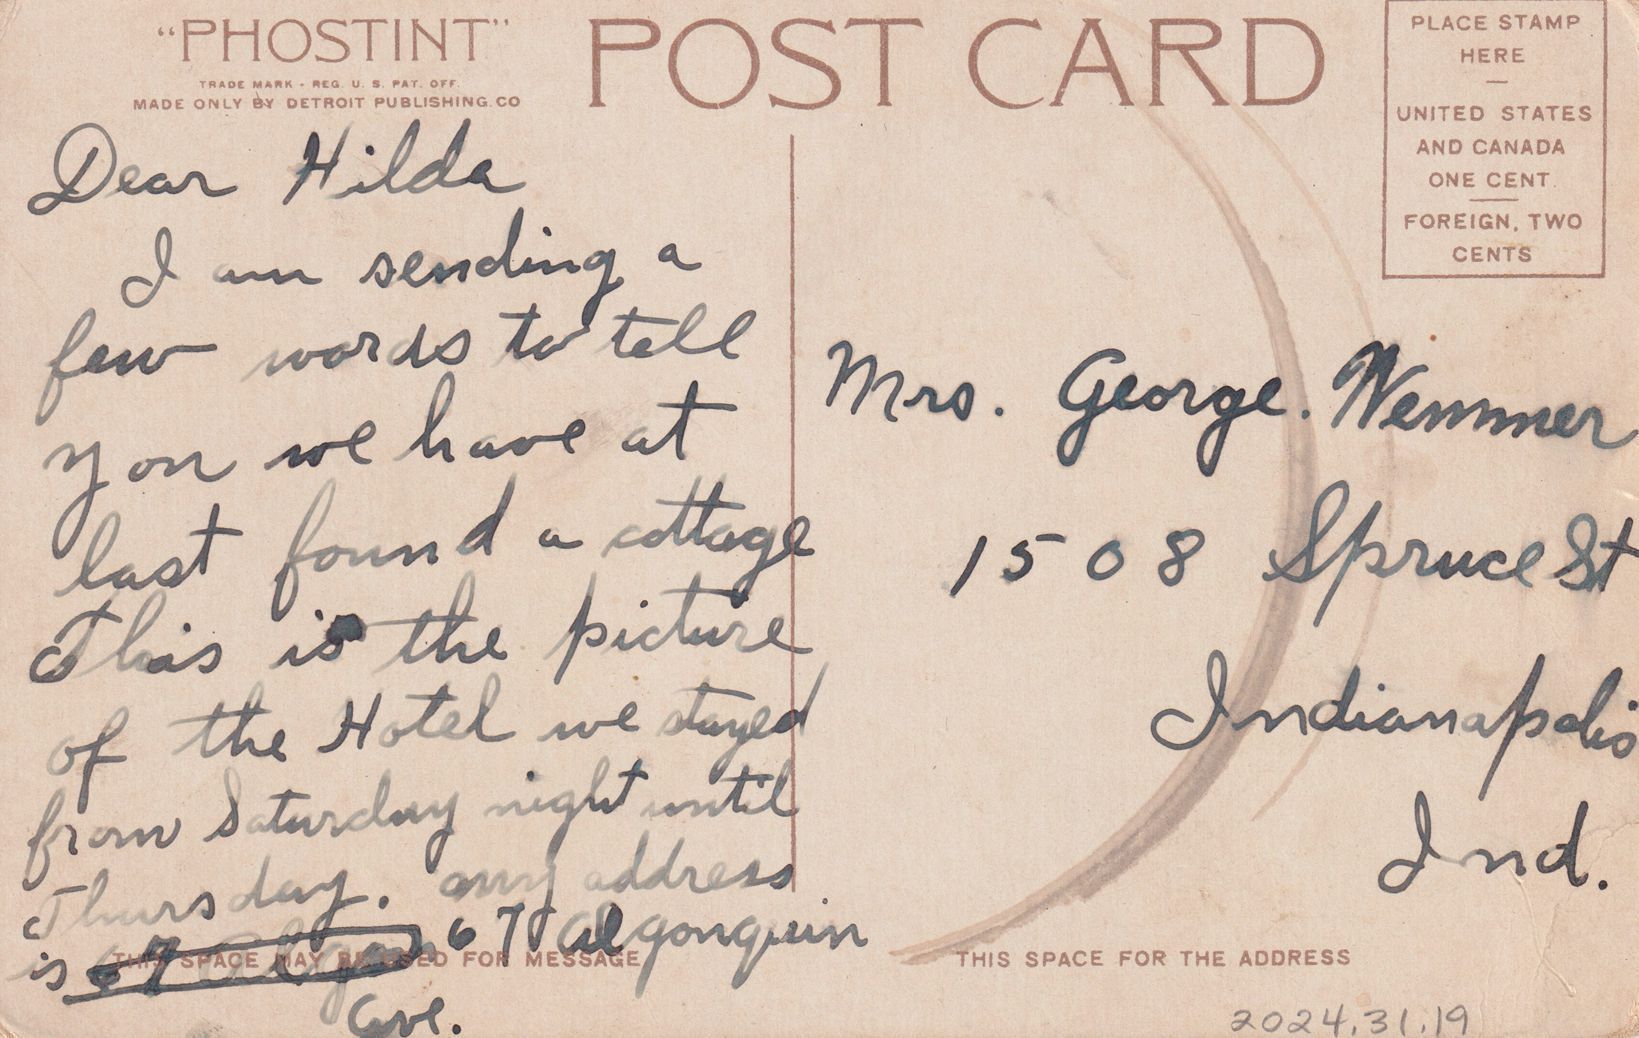 "PHOSTINT"
TRADE MARK - REG. U. S. PAT. OFF.
MADE ONLY BY DETROIT PUBLISHING. CO
POST CARD
PLACE STAMP
HERE
UNITED STATES
AND CANADA
ONE CENT.
FOREIGN, TWO
CENTS
Dear Hilda
I am sending a
few words to tell
you we have at
last found a cottage
This is the picture
of the Hotel we stayed
from Saturday night until
Thursday. any address
is 67 Algon 67 Algonquin
Ave.
THIS SPACE MAY BE USED FOR MESSAGE
Mrs. George. Wemmer
1508 Spruce St
Indianapolis
Ind.
THIS SPACE FOR THE ADDRESS
2024.31.19